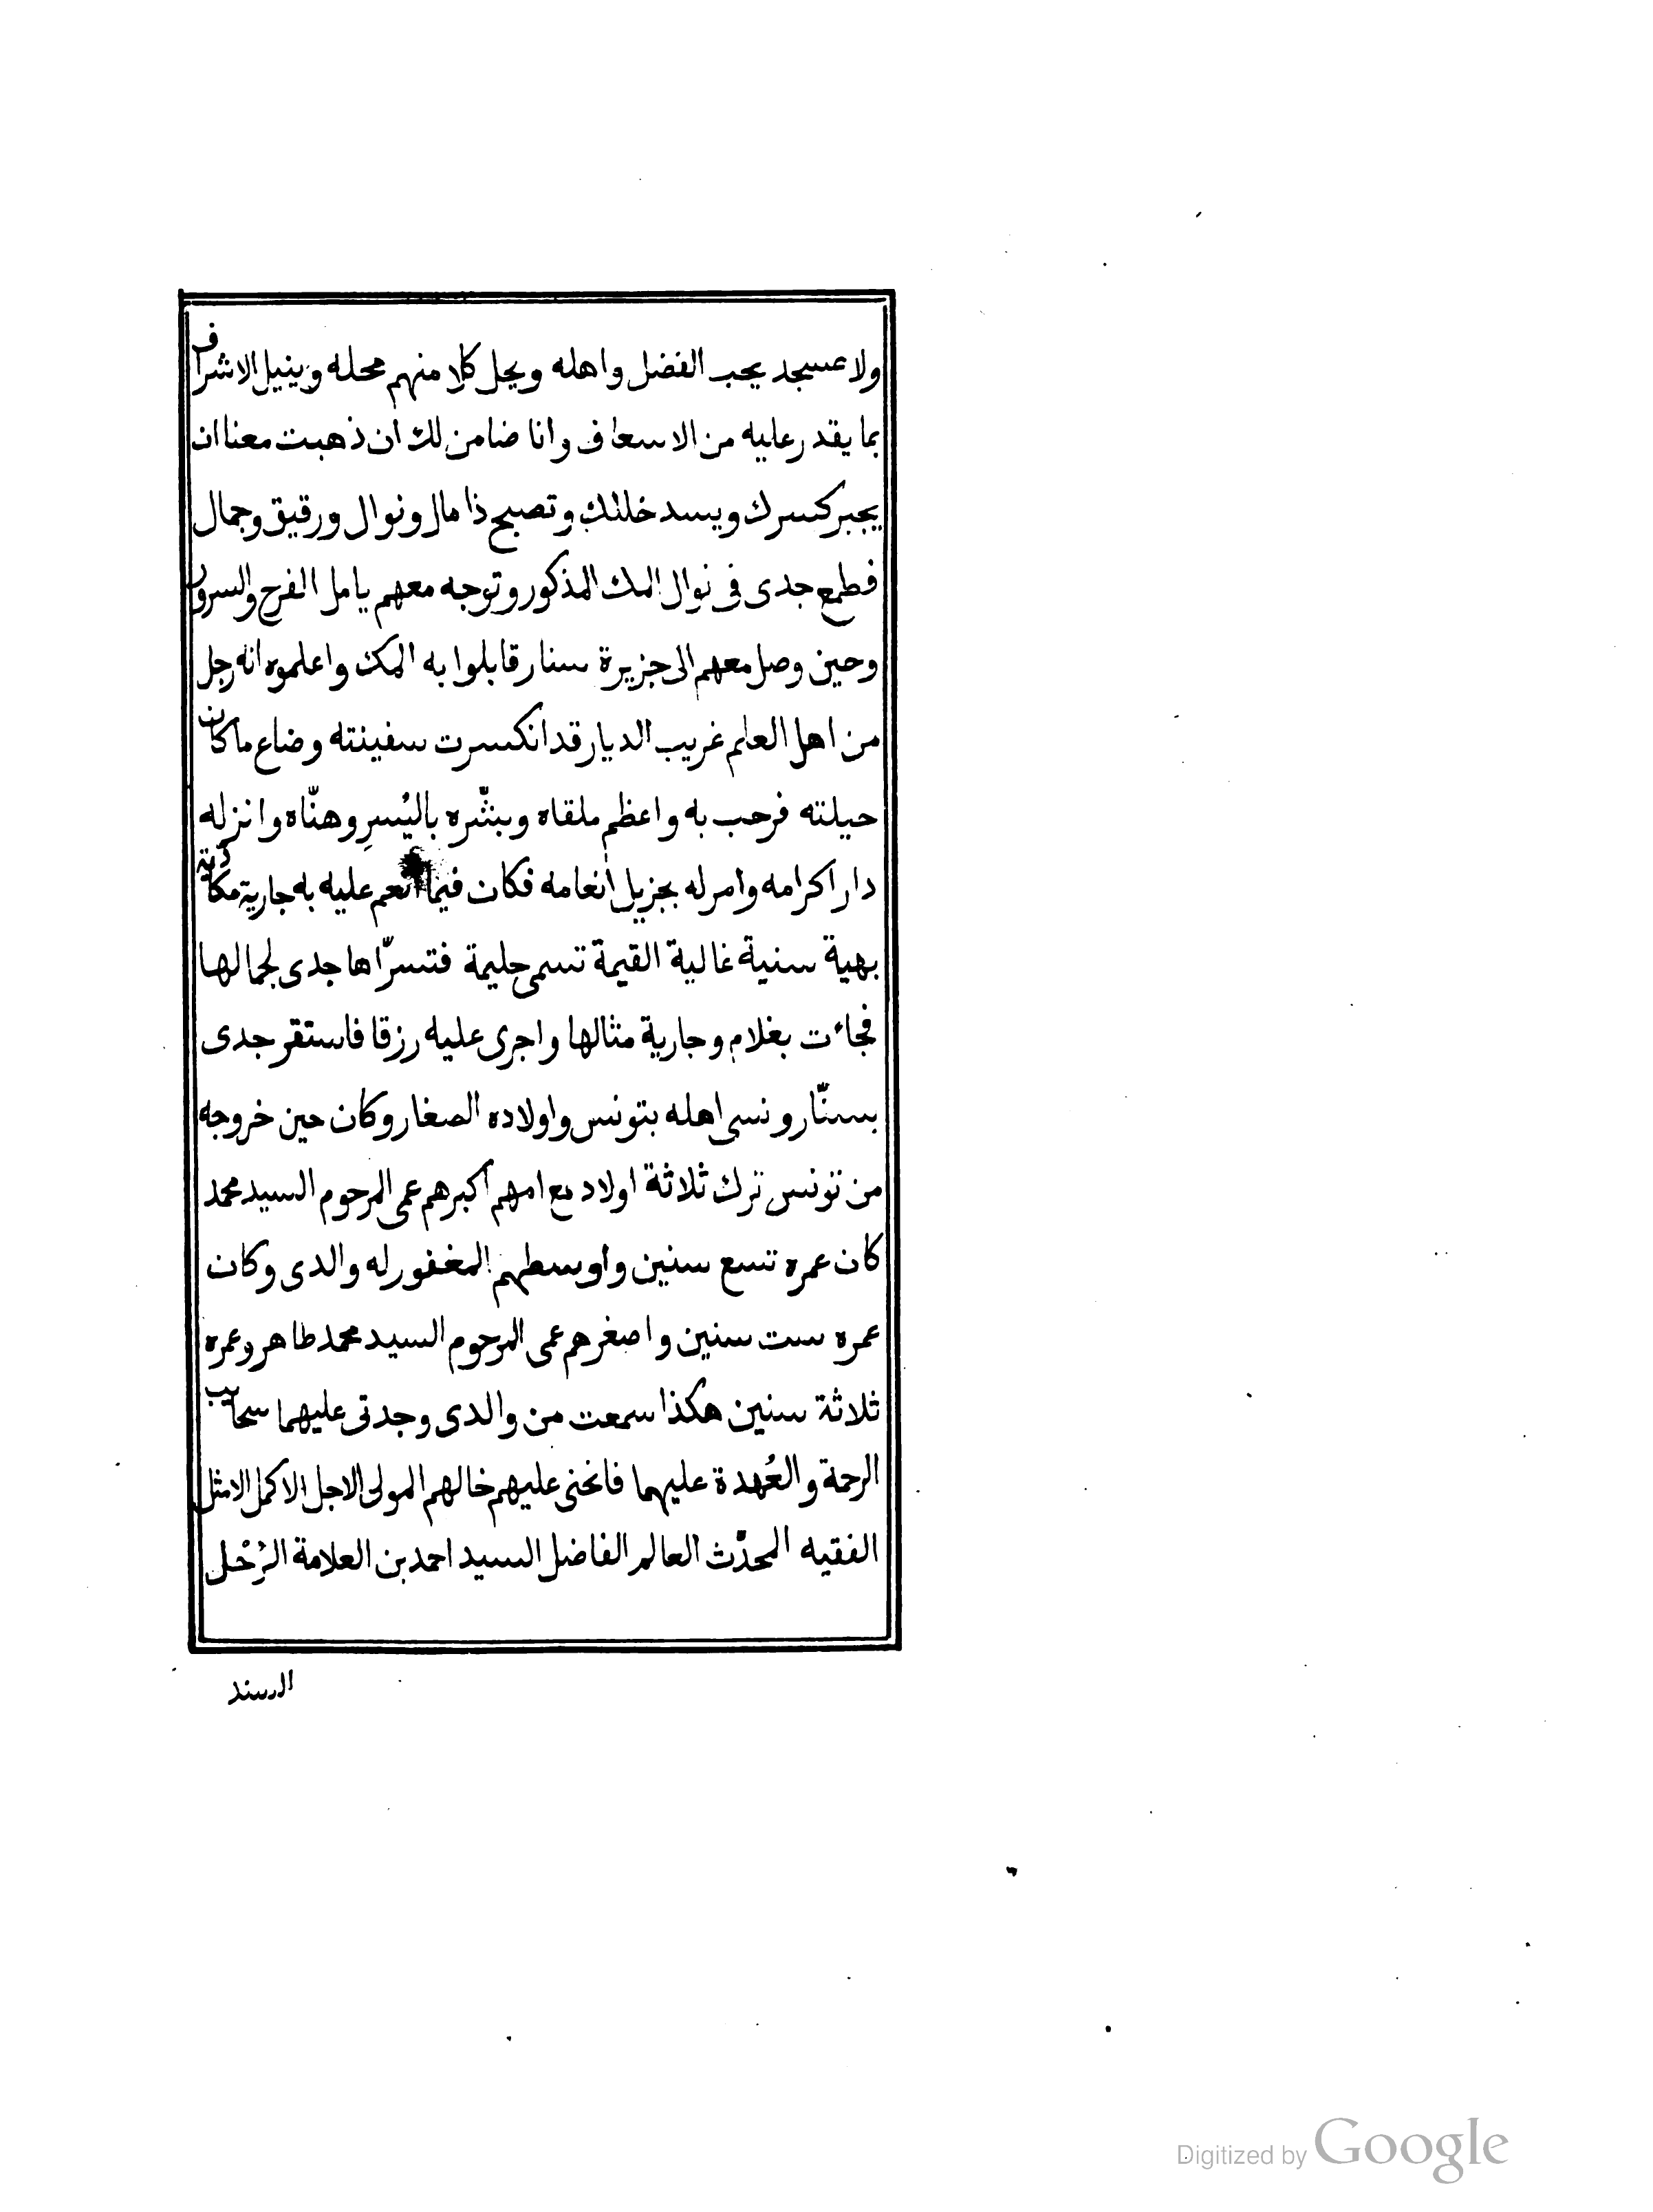 ولا عسجد يحب الفضل واهله ويحل كلا منهم محله وينيل الاشراف
بما يقدر عليه من الاسعاف وانا ضامن لك ان ذهبت معنا ان
يجبر كسرك ويسد خللك وتصبح ذا مال ونوال ورقيق وجمال
فطمع جدى فى نوال المك المذكور وتوجه معهم يامل الفرج والسرور
وحين وصل معهم الى جزيرة سنار قابلوا به المك واعلموه انه رجل
من اهل العلم غريب الديار قد انكسرت سفينته وضاع ما كان
حيلته فرحب به واعظم ملقاه وبشّره باليُسرِ وهنّاه وانزله
دار اكرامه وامر له بجزيل انعامه فكان فيما انعم عليه به جارية مكادية
بهية سنية غالية القيمة تسمى حليمة فتسرّاها جدى لجمالها
فجاءت بغلام وجارية مثالها واجرى عليه رزقا فاستقر جدى
بسنّار ونسى اهله بتونس واولاده الصغار وكان حين خروجه
من تونس ترك ثلاثة اولاد مع امهم اكبرهم عمى المرحوم السيد محمد
كان عمره تسع سنين واوسطهم المغفور له والدى وكان
عمره ست سنين واصغرهم عمى المرحوم السيد محمد طاهر وعمره
ثلاثة سنين هكذا سمعت من والدى وجدتى عليهما سحايب
الرحمة والعُهدة عليهما فانحنى عليهم خالهم المولى الاجل الاكمل الامثل
الفقيه المحدّث العالم الفاضل السيد احمد بن العلامة الرُحَل
السند
Digitized by Google